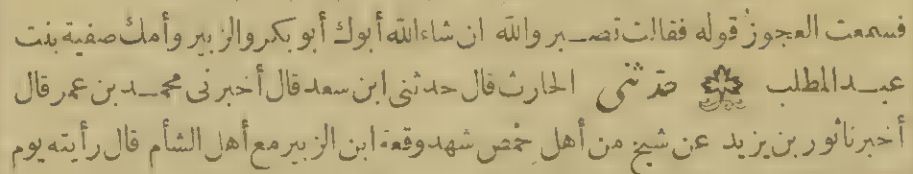 فسمعت العجوز قوله فقالت تصبر والله ان شاء الله أبوك أبو بكر والزبير وأمك صفية بنت
عبد المطلب حدثني الحارث قال حدثني ابن سعد قال أخبرني محمد بن عمر قال
أخبرنا ثور بن يزيد عن شيخ من أهل حمص شهد وقعة ابن الزبير مع أهل الشأم قال رأيته يوم